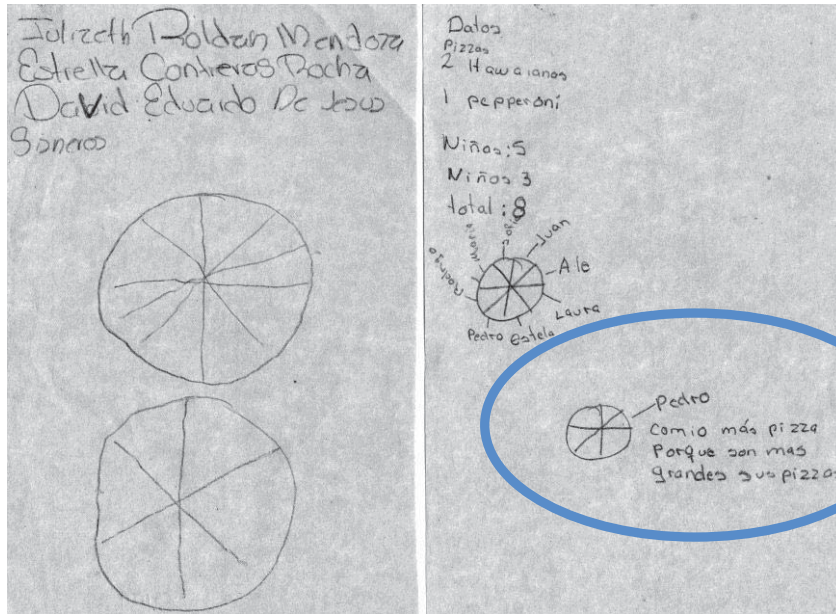 Julizeth Roldan Mendoza
Estrella Contreros Rocha
David Eduardo De Jesus
Sóneros
Datos
Pizzas
2 Hawaianas
1 pepperóni
Niños: 5
Niños 3
total: 8
Rodrigo
María
Sofia
Juan
Ale
Laura
Estela
Pedro
Pedro
Comio más pizza
Porque son mas
grandes sus pizzas